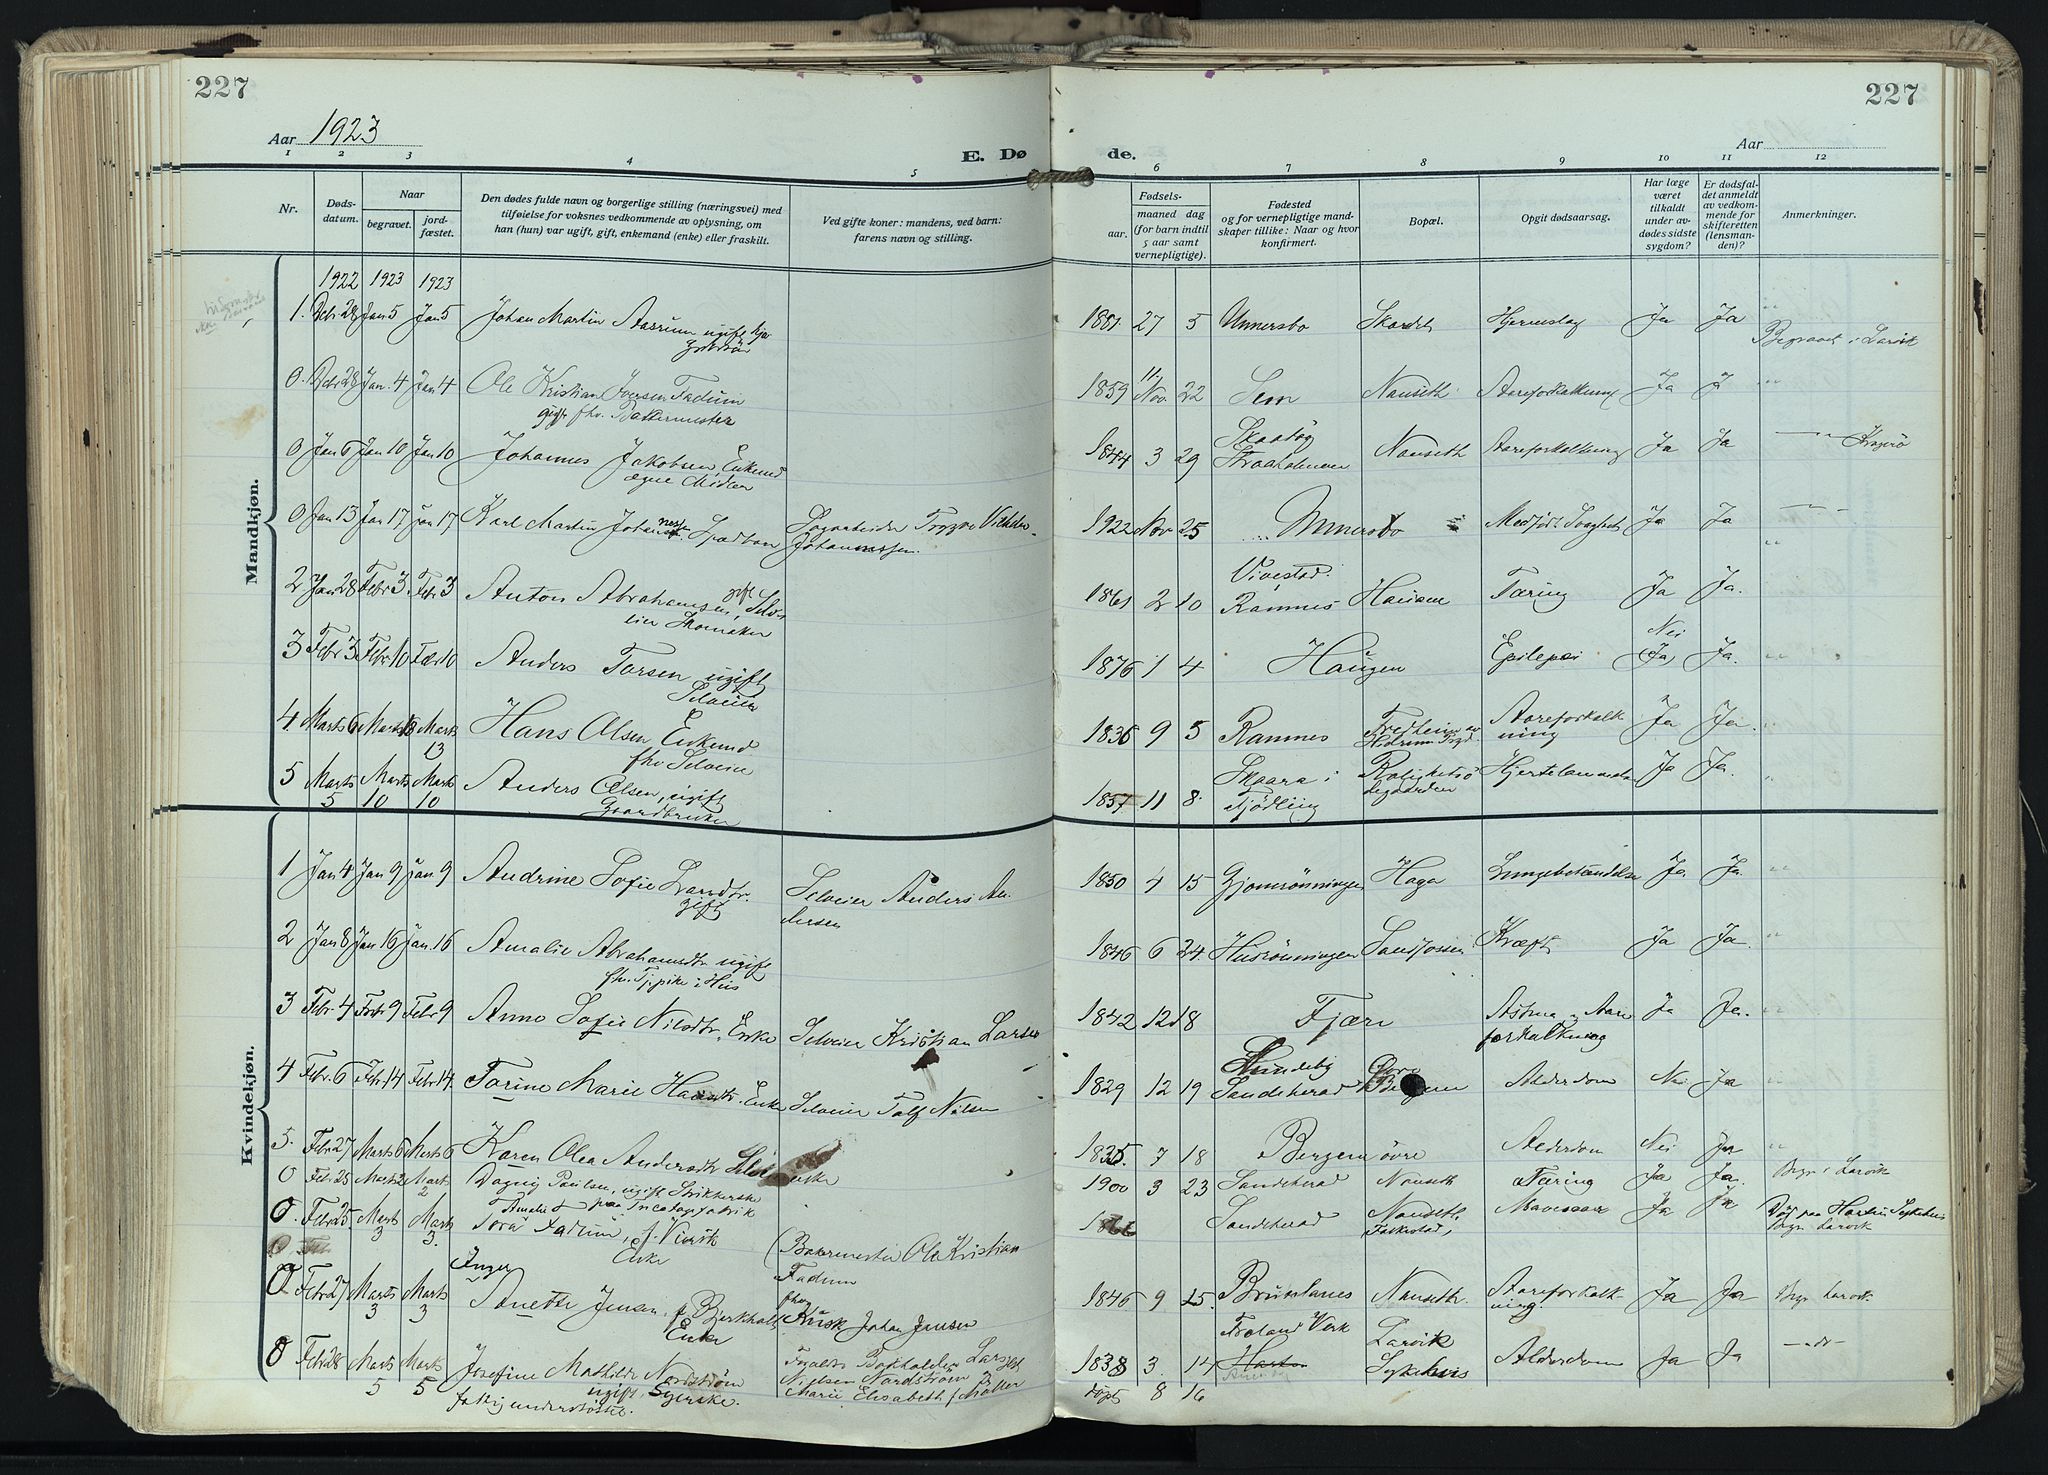 227
227
Aar 1923
E. Dø
de.
Aar
1 2 3 4 5 6 7 8 9 10 11 12
Nr.
Døds-
datum.
Naar
begravet.
jord-
fæstet.
Den dødes fulde navn og borgerlige stilling (næringsvei) med
tilføielse for voksnes vedkommende av oplysning, om
han (hun) var ugift, gift, enkemand (enke) eller fraskilt.
Ved gifte koner: mandens, ved barn:
farens navn og stilling.
Fødsels-
aar.
maaned dag
(for barn indtil
5 aar samt
vernepligtige).
Fødested
og for vernepligtige mand-
skaper tillike: Naar og hvor
konfirmert.
Bopæl.
Opgit dødsaarsag.
Har læge
været
tilkaldt
under av-
dødes sidste
sygdom?
Er dødsfal-
det anmeldt
av vedkom-
mende for
skifteretten
(lensman-
den)?
Anmerkninger.
Mandkjøn.
1922 1923 1923
1. Debr 28 Jan 5 Jan 5 Johan Martin Aarrum ugift 1881 27 5 Unnersbo Ja Ja
Begravet i Larvik
0. Debr 28 Jan. 4 Jan 4 Ole Kristian Iversen Fadum 1859 Nov. 22 Sem Nanseth Aareforkalkning Ja J
gift fhv. Bakermester
0 Jan 6 Jan 10 Jan 10 Johannes Jakobsen Enkemd 1844 3 29 Skaatøy Nanseth Aareforkalkning Ja Ja Kragerø
egne Midler
0 Jan 13 Jan 17 Jan 17 Karl Martin Johannesen. Spædbarn 1922 Nov 25 Unnersbo Ja Ja
Johannessen.
2 Jan 28 Febr 3. Febr 3 Anton Abrahamsen, gift Selv- 1861 2 10 Vivestad. Ramnes Hansen Tæring Ja Ja.
eier Skomaker
3 Febr 3 Febr 10 Febr 10 Anders Torsen ugift 1876 1 4 Haugen Epilepsi Nei (Ja) Ja.
Selveier
4. Marts 6 Marts 13 Marts 13 Hans Olsen Enkemd 1836 9 5 Ramnes Aareforkalk Ja Ja.
fhv Selveier ning
5 Marts 5 Marts 10 Marts 10 Anders Olsen, ugift 1857 11 8. Skaara i Fjødling Ja Ja.
Gaardbruker
Kvindekjøn.
1 Jan 4 Jan 9 Jan 9 Andrine Sofie Larsdtr. Selveier Anders An- 1850 4 15 Gjønnrønningen Haga Lungebetændelse Ja. Ja.
gift dersen
2 Jan 8 Jan 16 Jan. 16 Amalie Abrahamsdtr ugift 1846 6 24. Husrønningen Sandfossen Kræft Ja Ja
fhv. Tj.pike i Hus
3 Febr. 4 Febr 9 Febr 9 Anne Sofie Nilsdtr, Enke Selveier Kristian Larsen 1842 12 18 Fjære Astma og Aare Ja Ja.
forkalkning
4 Febr. 6 Febr. 14 Febr 14. Torine Marie Hansdtr. Enke Selveier Tolf Nilsen 1829 12 19 Sandeherad Bergem Alderdom Nei Ja
5. Febr 27 Marts 6 Marts 6 Karen Olea Andersdtr 1835. 7 18 Bergem øvre Alderdom Nei Ja
0 Febr. 25 Marts 2 Marts 2 Dagny Paulsen, ugift Strikkerske 1900 3 23 Sandeherad Nanseth Tæring Ja Ja. Begr. i Larvik
paa Tricotagefabrik
0. Febr 25 Marts 3 Marts 3. Amalie Tora Fadum, f. Viersk 1866 Sandeherad Nanseth, Mavesaar Ja Ja Død paa Hartvi Sykehus
Enke (Bakermester Ole Kristian Fadum Begr. Larvik
0 Febr 27 Marts 3 Marts 3 Inger Anette Jensen, f. Bjerkholt fhv. Johan Jensen 1846 9 25. Brunlanes Nanseth. Aareforkalk- Ja Ja Begr Larvik
Enke ning.
0 Febr 28 Marts 5 Marts 5 Josefine Mathilde Nordstrøm 1838 3. 14 Froland Verk Larvik Sykehus Alderdom Ja Ja
ugift Syerske. Nielsen Nordstrøm &
fattigunderstøttet. Marie Elisabeth f Møller
døpt 8 16